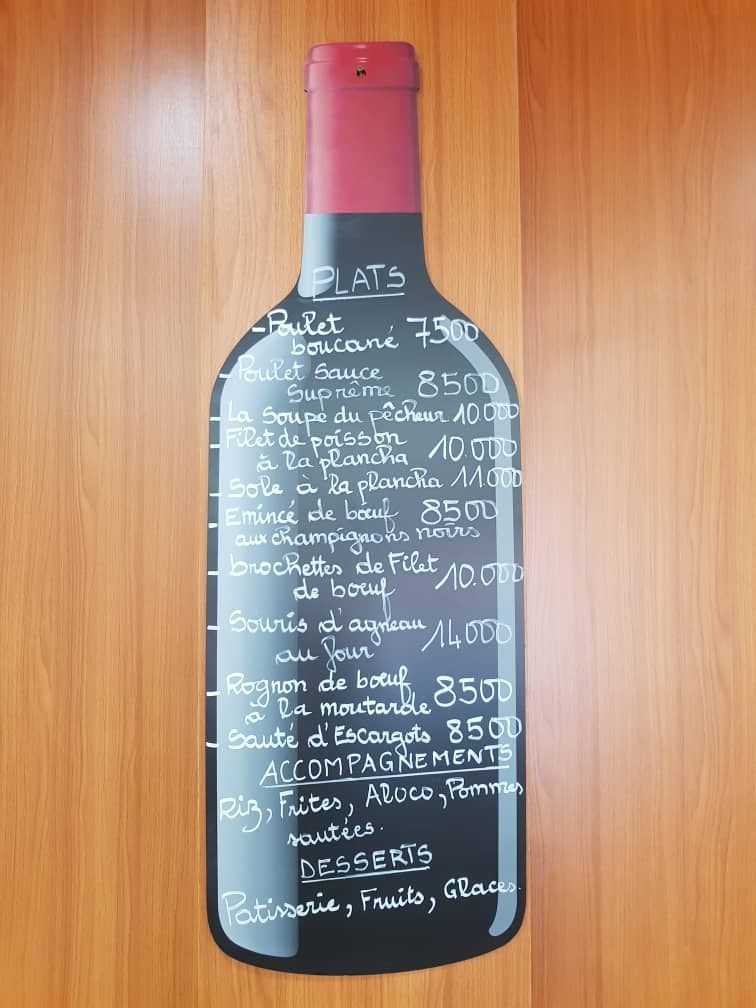 PLATS
- Poulet
boucané 7500
- Poulet Sauce
Suprême 8500
- La Soupe du pêcheur 10.000
- Filet de poisson
à la plancha 10.000
- Sole à la plancha 11.000
- Emincé de bœuf 8500
aux champignons noirs
- brochettes de Filet
de bœuf 10.000
- Souris d'agneau
au four 14000
- Rognon de bœuf
à la moutarde 8500
- Sauté d'Escargots 8500
ACCOMPAGNEMENTS
Riz, Frites, Aloco, Pommes
sautées.
DESSERTS
Patisserie, Fruits, Glaces.